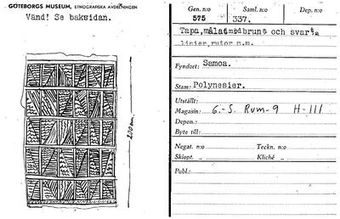 GÖTEBORGS MUSEUM, ETNOGRAFISKA AVDELNINGEN
Vänd! Se baksidan.
200 cm
Gen. n:o
575
Saml. n:o
337.
Dep. n:o
Tapa, målad med brunt och svarta
linier, rutor m.m.
Fyndort: Samoa.
Stam: Polynesier.
Utställt:
Magasin: G.-S. Rum-9 H-III
Depon.:
Byte till:
Negat. n:o
Teckn. n:o
Skiopt.
Kliché
Publ.: